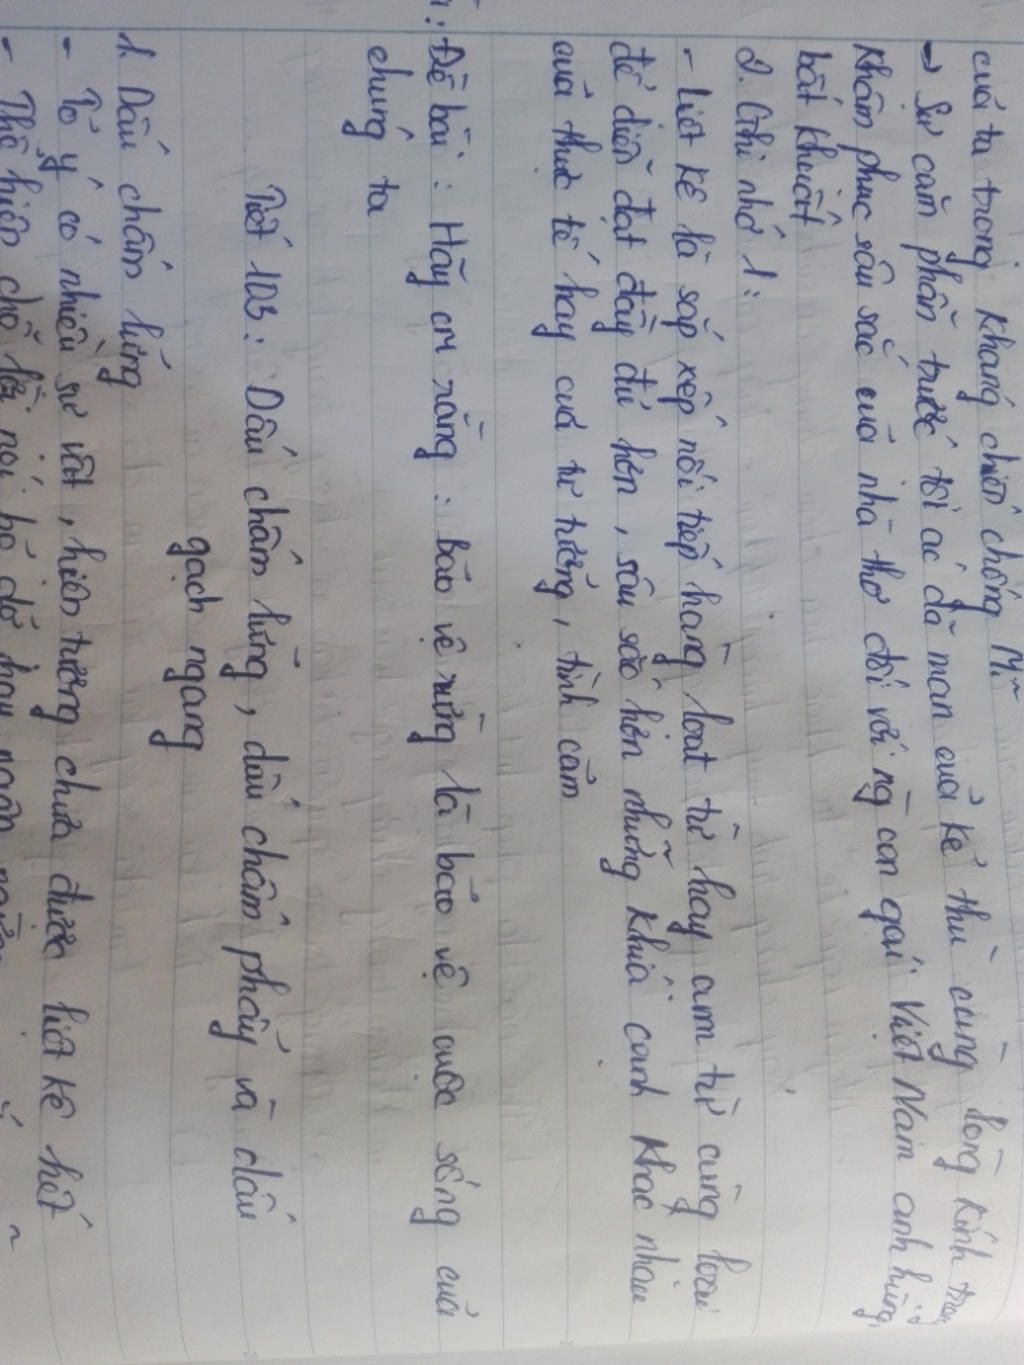 của ta trong kháng chiến chống Mĩ
→ Sự căm phẫn trước tội ác dã man của kẻ thù cùng lòng kính trọng,
khâm phục sâu sắc của nhà thơ đối với ng con gái Việt Nam anh hùng,
bất khuất
2. Ghi nhớ 1:
- Liệt kê là sắp xếp nối tiếp hàng loạt từ hay cụm từ cùng loại
để diễn đạt đầy đủ hơn, sâu sắc hơn những khía cạnh khác nhau
của thực tế hay của tư tưởng, tình cảm
: Đề bài: Hãy cm rằng: bảo vệ rừng là bảo vệ cuộc sống của
chúng ta
Tiết 103: Dấu chấm lửng, dấu chấm phẩy và dấu
gạch ngang
1. Dấu chấm lửng
- Tỏ ý có nhiều sự vật, hiện tượng chưa được liệt kê hết
- Thể hiện chỗ lời nói bỏ dở hay ngập ngừng